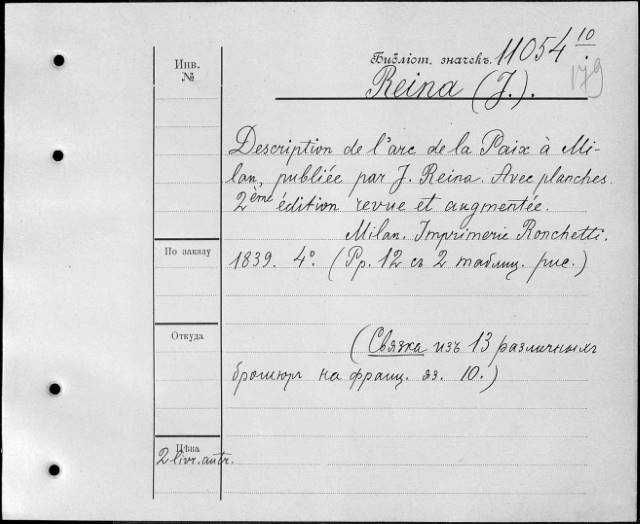 Инв.
№
Библіот. значекъ. 11054 10
179
Reina (J.).
Description de l'arc de la Paix à Mi-
lan, publiée par J. Reina. Avec planches.
2ème édition revue et augmentée.
Milan. Imprimerie Ronchetti.
По заказу
1839. 4°. (Pp. 12 съ 2 таблиц. рис.)
Откуда
(Связка изъ 13 различныхъ
брошюръ на франц. яз. 10.)
Цѣна
2 livr. autr.